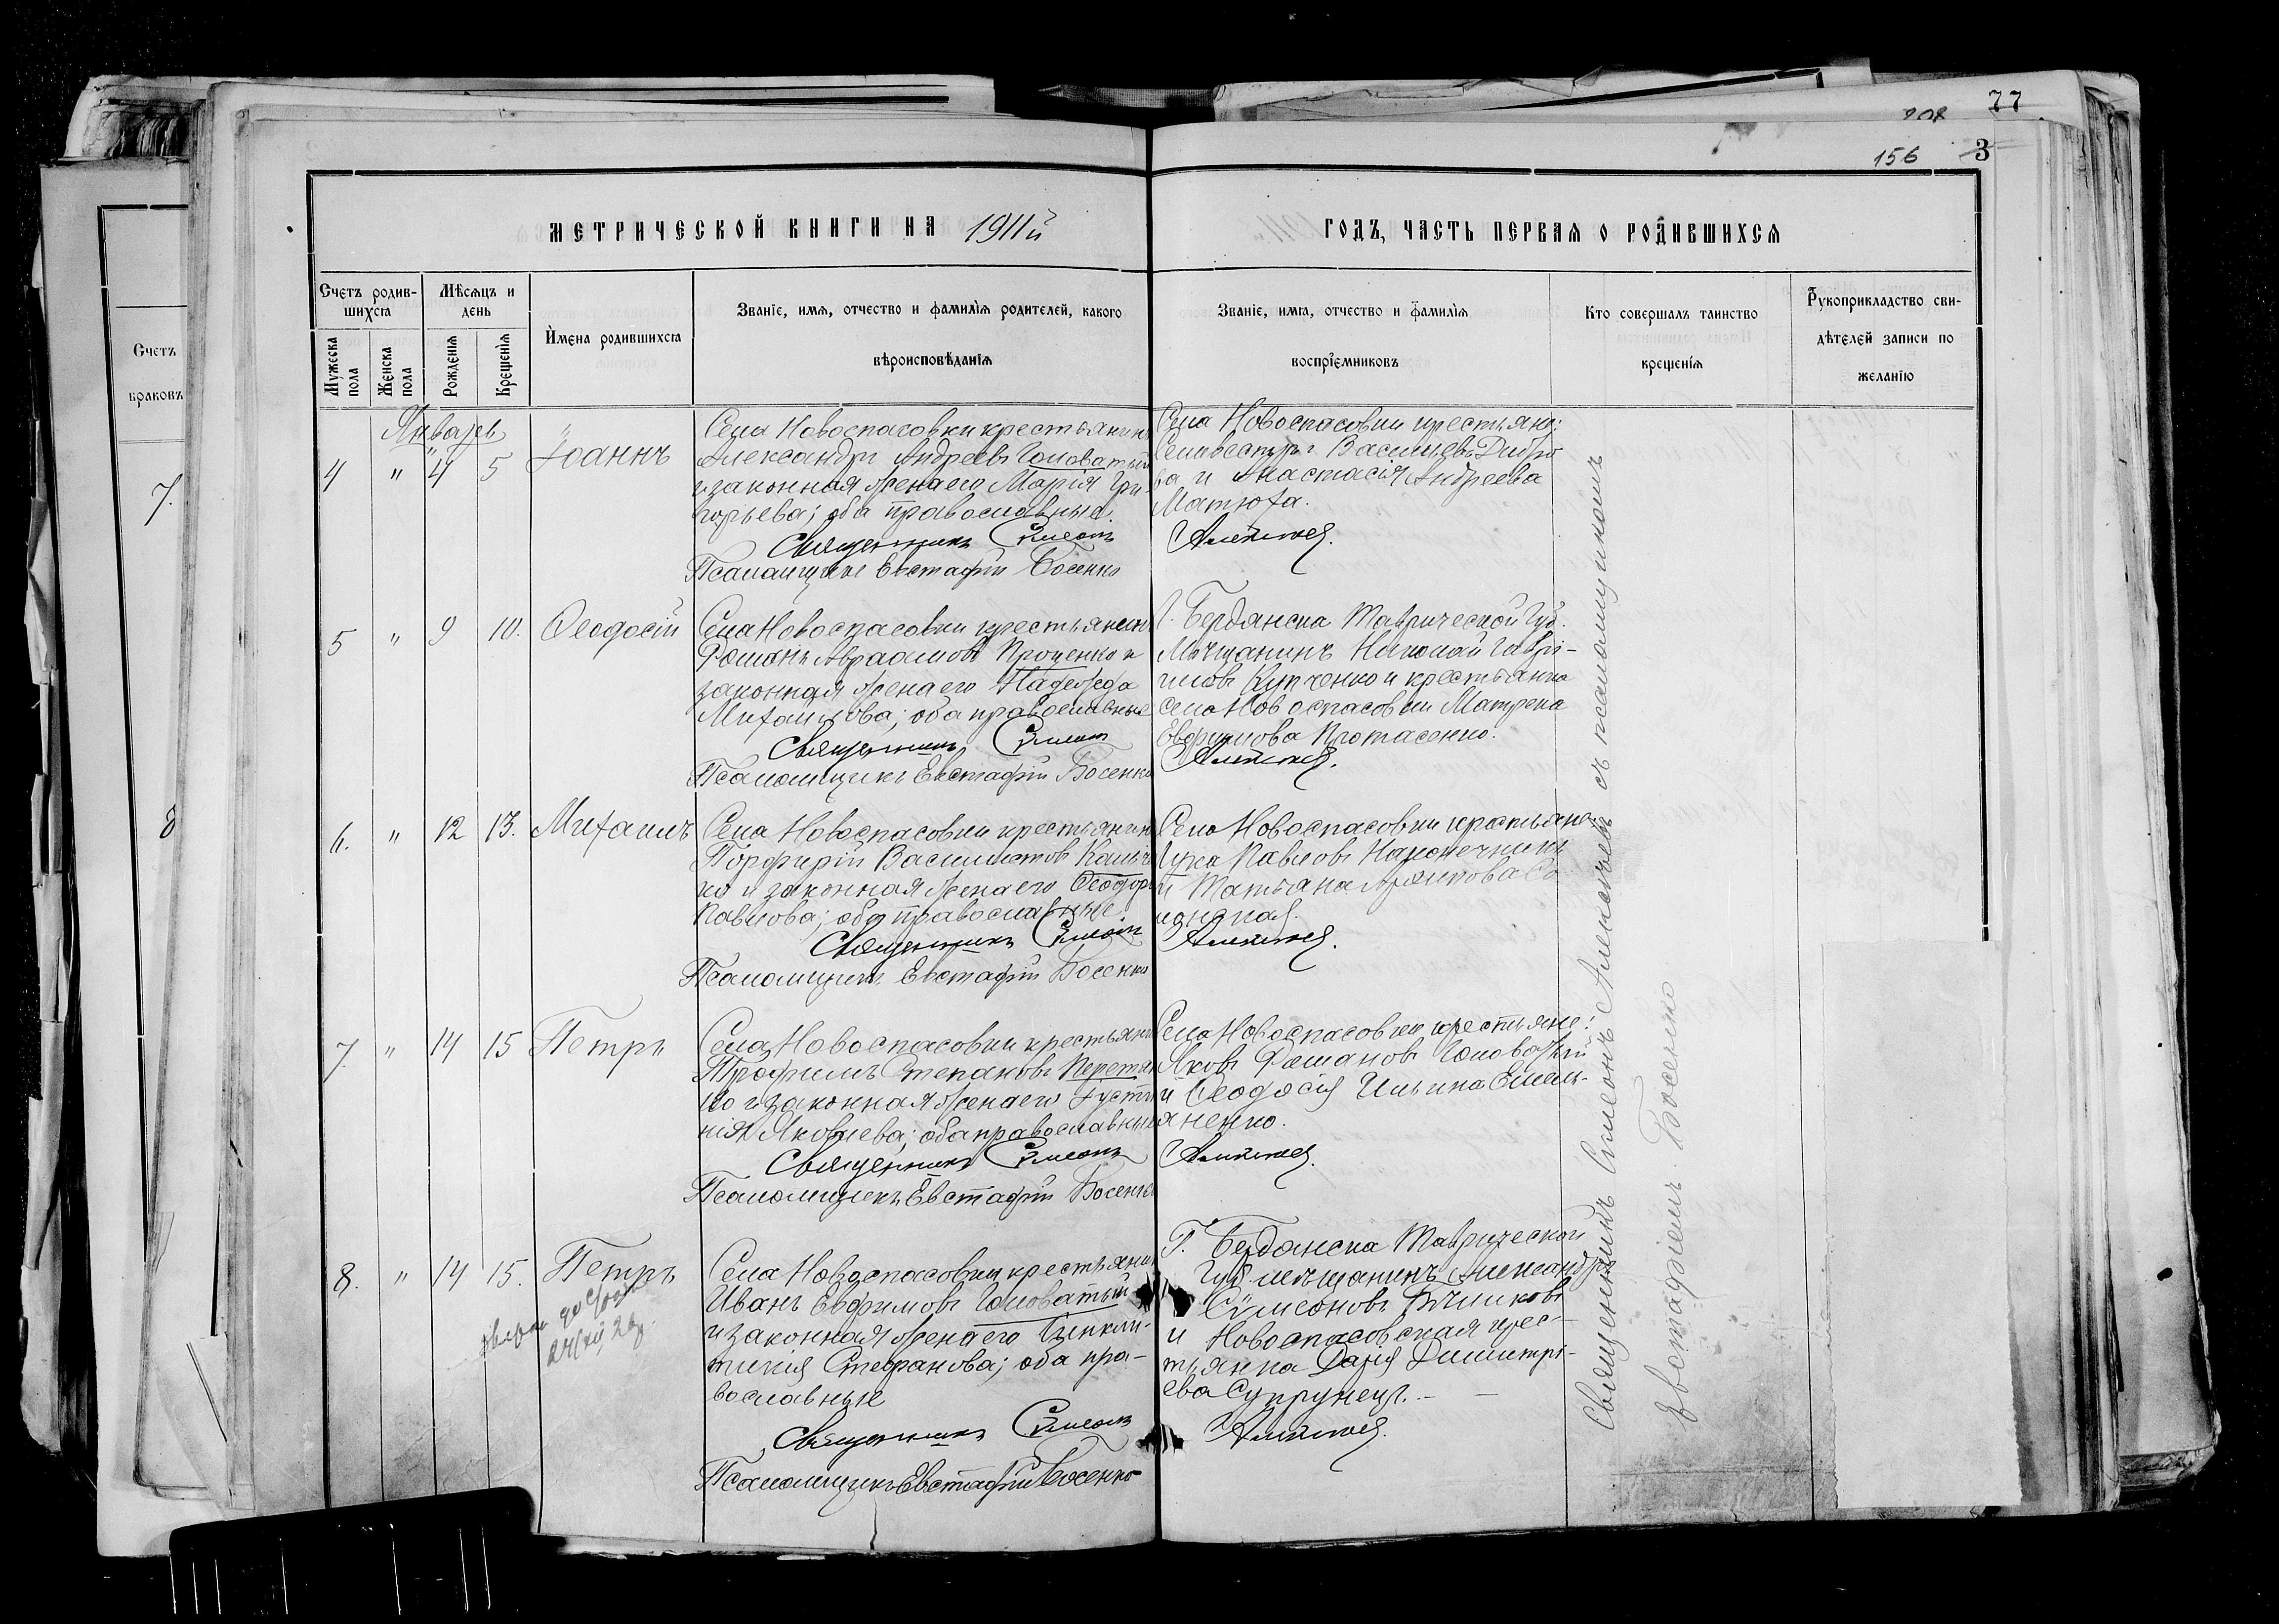 77
208
156 3
МЕТРИЧЕСКОЙ КНИГИ НА 1911й
ГОДЪ, ЧАСТЬ ПЕРВАЯ О РОДИВШИХСЯ
Счетъ
браковъ
7.
8
Счетъ родив-
шихся
Мужеска
пола
Женска
пола
Мѣсяцъ и
день
Рожденія
Крещенія
Имена родившихся
Званіе, имя, отчество и фамилія родителей, какого
вѣроисповѣданія
Званіе, имя, отчество и фамилія
воспріемниковъ
Кто совершалъ таинство
крещенія
Рукоприкладство сви-
дѣтелей записи по
желанію
Январь
4 " 4 5 Іоаннъ
Села Новоспасовки крестьянинъ
Александръ Андреевъ Головатый
и законная жена его Марія Гри-
горьева; оба православные.
Священникъ Сѵмеонъ
Псаломщикъ Евстафій Босенко
Села Новоспасовки крестьяне:
Сильвестръ Васильевъ Дибро
ва и Анастасія Андреева
Матюха.
Алексѣевъ.
5 " 9 10. Ѳеодосій
Села Новоспасовки крестьянинъ
Романъ Авраамовъ Проценко и
законная жена его Надежда
Михаилова; оба православные
Священникъ Сѵмеонъ
Псаломщикъ Евстафій Босенко
Г. Бердянска Таврической Губ.
Мѣщанинъ Николай Гаврі-
иловъ Купченко и крестьянка
села Новоспасовки Матрена
Евфимова Протасенко.
Алексѣевъ.
6. " 12 13. Михаилъ
Села Новоспасовки крестьянинъ
Порфирій Василистовъ
ко и законная жена его Ѳеодора
Павлова; оба православные
Священникъ Сѵмеонъ
Псаломщикъ Евстафій Босенко
Села Новоспасовки крестьяне
Лука Павловъ Наконечникъ
и Татьяна
Алексѣевъ.
7. " 14 15 Петръ
Села Новоспасовки крестьянинъ
Трофимъ Степановъ Перетять
ко и законная жена его Густи
нія Яковлева; оба православные
Священникъ Сѵмеонъ
Псаломщикъ Евстафій Босенко
Села Новоспасовки крестьяне:
Яковъ Романовъ Головатый
и Ѳеодосія Ильина Емель-
яненко.
Алексѣевъ.
8. " 14 15. Петръ
Села Новоспасовки крестьянинъ
Иванъ Евфимовъ Головатый
и законная жена его Синкли-
тикія Стефанова; оба пра-
вославные
Священникъ Сѵмеонъ
Псаломщикъ Евстафій Босенко
Г. Бердянска Таврической
Губ. мѣщанинъ Александръ
Сѵмеоновъ Бѣликовъ
и Новоспасовская крес-
тьянка Дарія Димитрі-
ева Супрунецъ.
Алексѣевъ.
Священникъ Симеонъ Алексѣевъ съ псаломщикомъ
Евстафіемъ Босенко